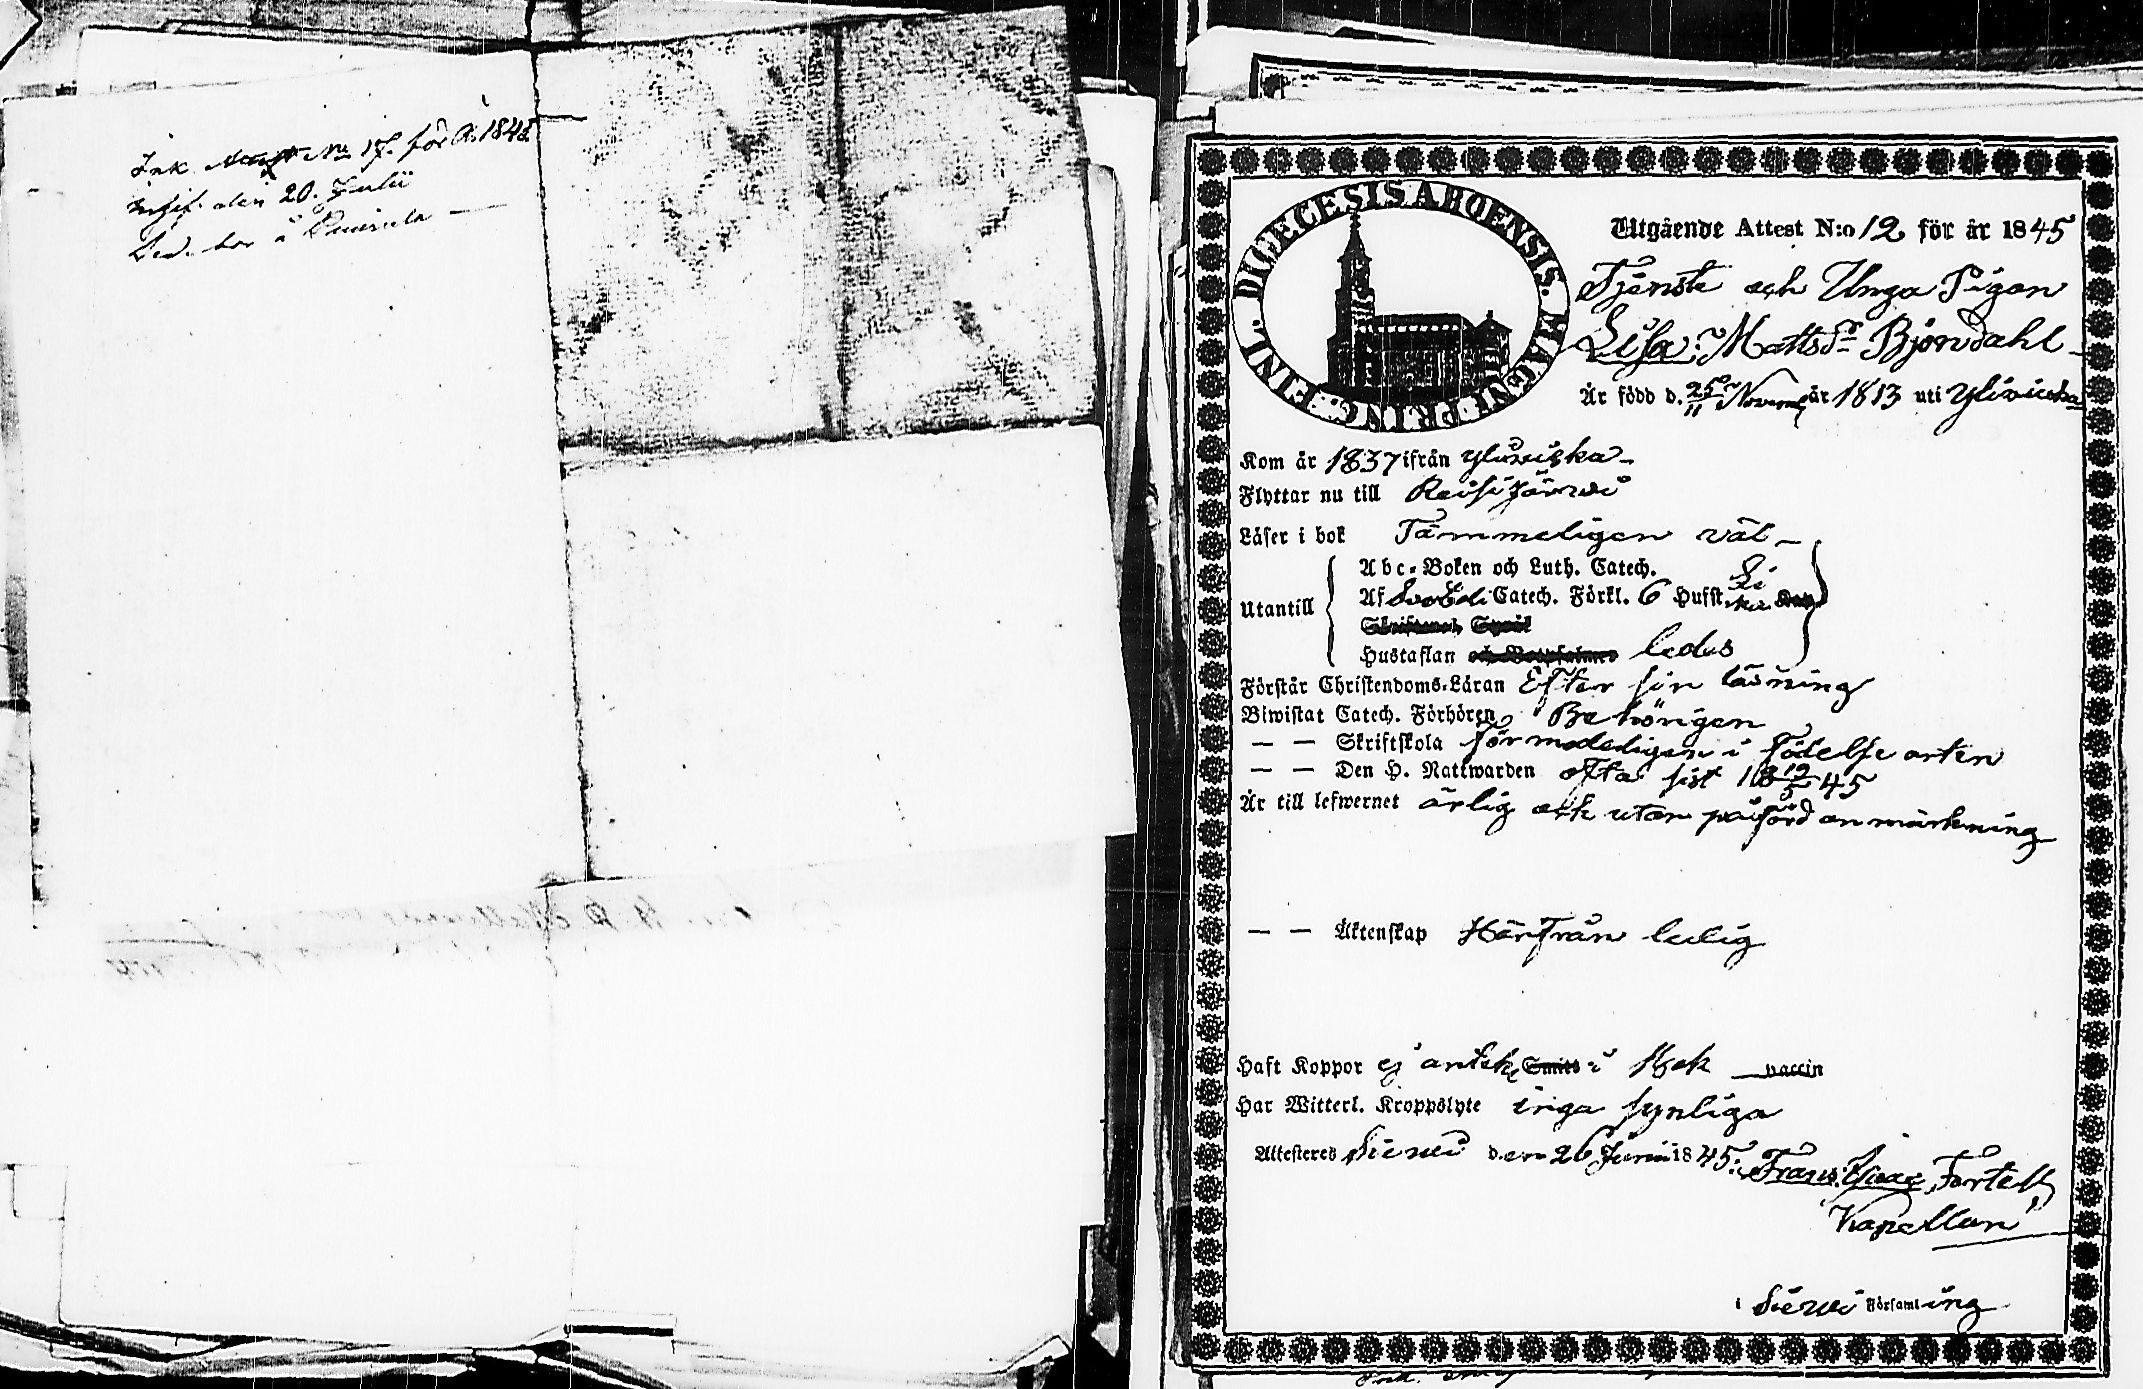 Ink. Attest No 17. för År 1845
den 20. Julii
DIOECESIS ABOENSIS. MAGNI PRINC. FINL.
Utgående Attest N:o 12 för år 1845
Tjenste och Unga Pigan
Lisa Mattsdr Björndahl
Är född d. 25/11 Novemb år 1813 uti Ylivieska
Kom år 1837 ifrån Ylivieska
Flyttar nu till Reisijärvi
Läser i bok Tämmeligen väl
Abc-Boken och Luth. Catech.
Utantill Af Svebeli Catech. Förkl. 6 Hufst
Hustaflan ledes
Förstår Christendoms-Läran Efter sin läsning
Biwistat Catech. Förhören Behörigen
— — Skriftskola förmodeligen i födelse orten
— — Den H. Nattwarden ofta sist 18 19/5 45
Är till lefwernet ärlig och utan påförd anmärkning
— — Äktenskap Härifrån ledig
Haft Koppor ej antekn Smitt i Kbok vaccin
Har Witterl. Kroppslyte inga synliga
Attesteres Sievi den 26 Junii 1845: Frans Isaac Fortell
Kapellan
i Sievi Församling